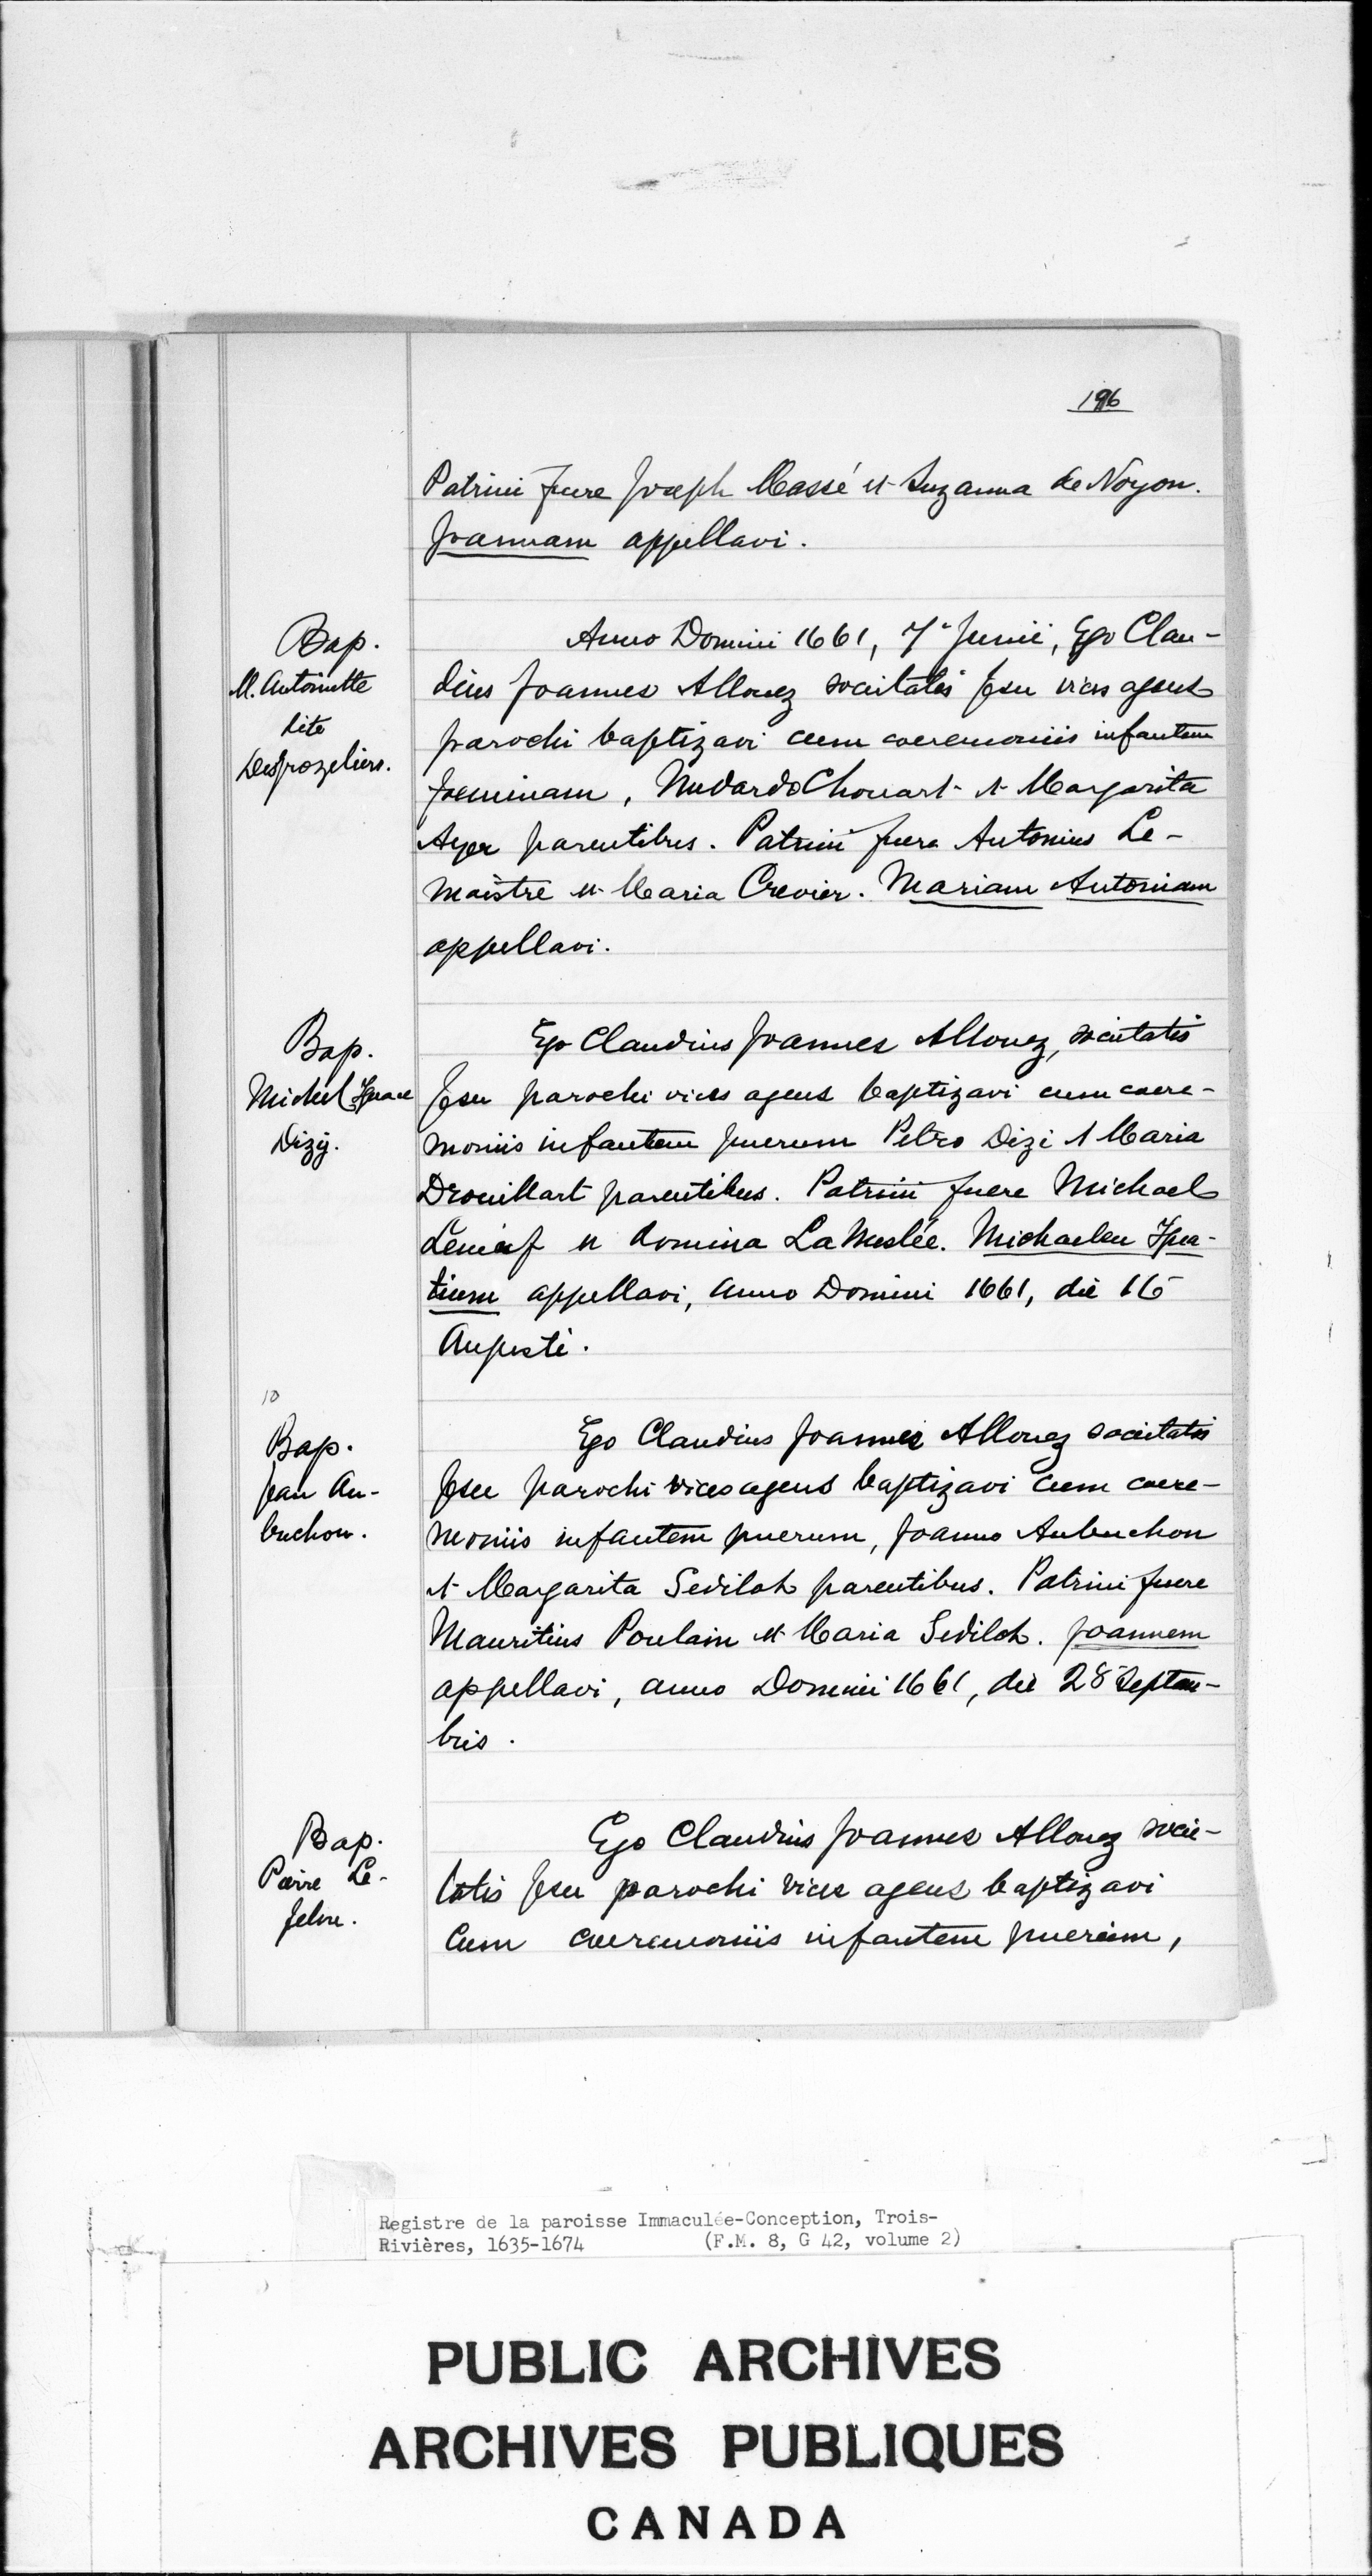 196
Patrini fuere Joseph Massé et Suzanna de Noyon.
Joannam appellavi.
Bap.
M. Antoinette
dite
Desgrozeliers.
Anno Domini 1661, 7ª Junii, Ego Clau-
dius Joannes Allouez societatis Jesu vices agens
parochi baptizavi cum coeremoniis infantem
foeminam, Medardo Chouart et Margarita
Ayer parentibus. Patrini fuere Antonius Le-
maistre et Maria Crevier. Mariam Antoniam
appellavi.
Bap.
Michel Ignace
Dizy.
Ego Claudius Joannes Allouez, societatis
Jesu parochi vices agens baptizavi cum coere-
moniis infantem puerum Petro Dizi et Maria
Drouillart parentibus. Patrini fuere Michael
Leneuf et domina La Meslée. Michaelem Igna-
tium appellavi, anno Domini 1661, die 16
Augusti.
10
Bap.
Jean Au-
buchon.
Ego Claudius Joannes Allouez societatis
Jesu parochi vices agens baptizavi cum coere-
moniis infantem puerum, Joanno Aubuchon
et Margarita Sedilot parentibus. Patrini fuere
Mauritius Poulain et Maria Sedilot. Joannem
appellavi, anno Domini 1661, die 28 Septem-
bris.
Bap.
Pierre Le-
febvre.
Ego Claudius Joannes Allouez socie-
tatis Jesu parochi vices agens baptizavi
cum coeremoniis infantem puerum,
Registre de la paroisse Immaculée-Conception, Trois-
Rivières, 1635-1674 (F.M. 8, G 42, volume 2)
PUBLIC ARCHIVES
ARCHIVES PUBLIQUES
CANADA